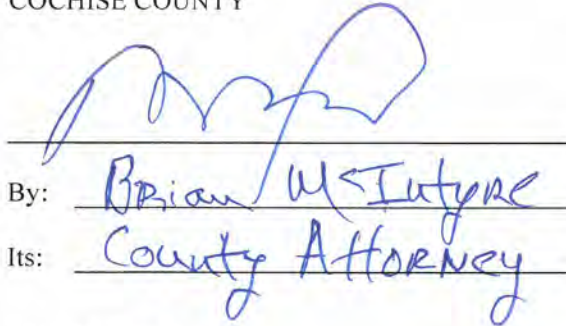 COCHISE COUNTY
By: Brian McIntyre
Its: County Attorney